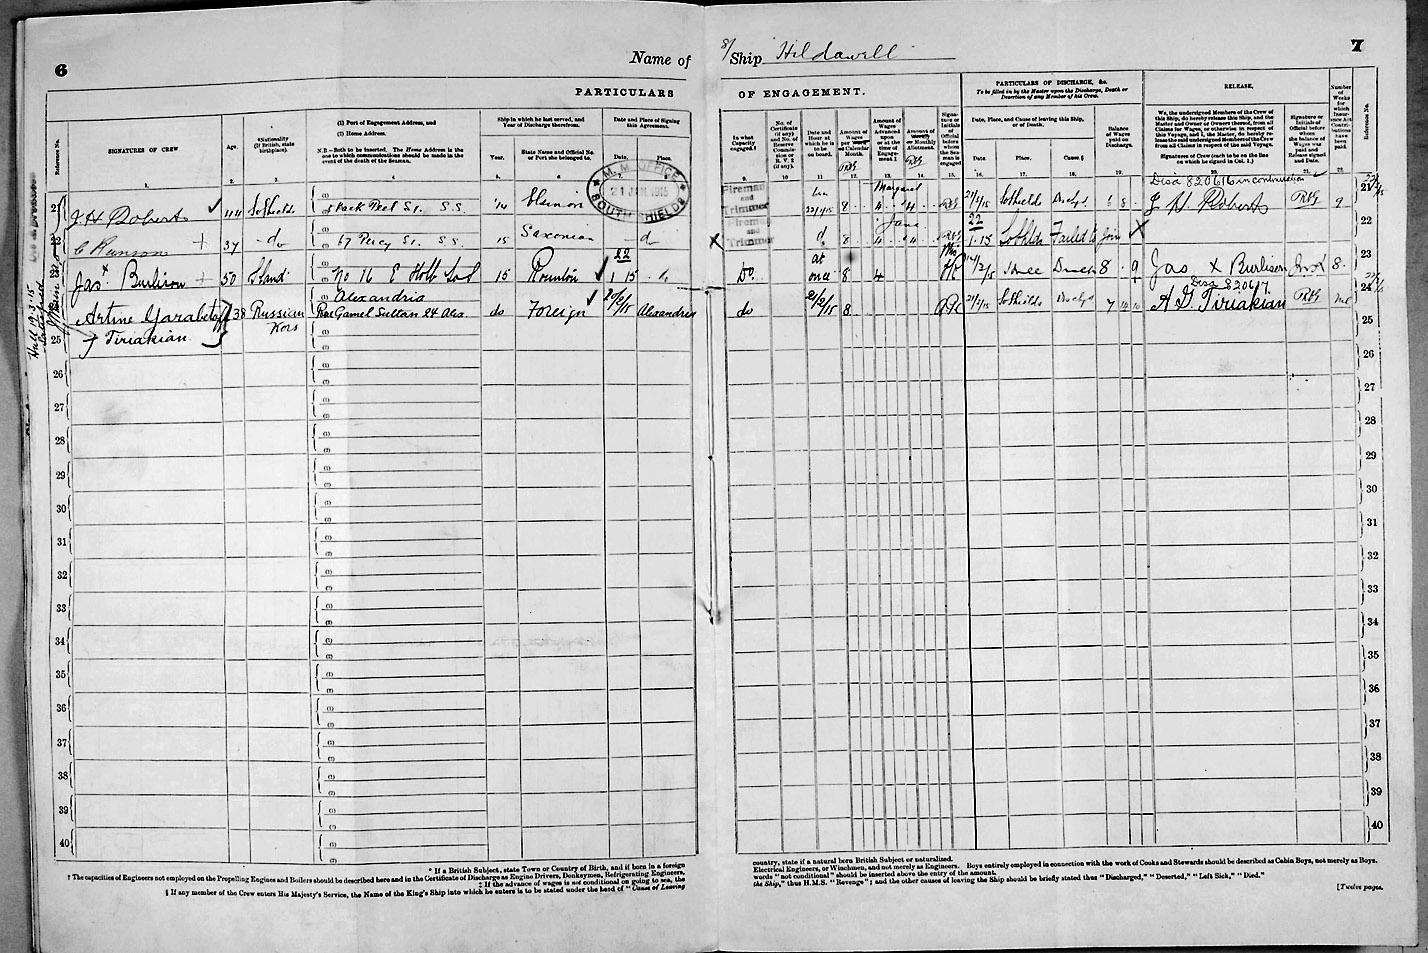 6
Name of
S/ Ship Hildawell
7
PARTICULARS
OF ENGAGEMENT.
PARTICULARS OF DISCHARGE, &c.
To be filled in by the Master upon the Discharge, Death or
Desertion of any Member of his Crew.
RELEASE.
Reference No.
SIGNATURES OF CREW
Age.
*Nationality
(If British, state
birthplace).
(1) Port of Engagement Address, and
(2) Home Address.
N.B.—Both to be inserted. The Home Address is the
one to which communications should be made in the
event of the death of the Seaman.
Ship in which he last served, and
Year of Discharge therefrom.
Year.
State Name and Official No.
or Port she belonged to.
Date and Place of Signing
this Agreement.
Date.
Place.
In what
Capacity
engaged.†
No. of
Certificate
(if any)
and No. of
Reserve
Commis-
sion or
R. V. 2
(if any).
Date and
Hour at
which he is
to be
on board.
Amount of
Wages
per Week
or Calendar
Month.
Amount of
Wages
Advanced
upon
or at the
time of
Engage-
ment.‡
Amount of
Weekly
or Monthly
Allotment.
Signa-
ture or
Initials
of
Official
before
whom
the Sea-
man is
engaged
Date, Place, and Cause of leaving this Ship,
or of Death.
Date.
Place.
Cause §
Balance
of Wages
paid on
Discharge.
We, the undersigned Members of the Crew of
this Ship, do hereby release this Ship, and the
Master and Owner or Owners thereof, from all
Claims for Wages, or otherwise in respect of
this Voyage, and I, the Master, do hereby re-
lease the said undersigned Members of the Crew
from all Claims in respect of the said Voyage.
Signatures of Crew (each to be on the line
on which he signed in Col. 1.)
Signature or
Initials of
Official before
whom
the balance of
Wages was
paid and
Release signed
and Date.
Number
of
Weeks
for
which
Insur-
ance Act
Contri-
butions
have
been
paid.
Reference No.
1. 2. 3. 4. 5. 6. 7. 8.
9. 10 11 12. 13. 14. 15. 16. 17. 18. 19. 20. 21. 22.
M. M. OFFICE
21 JAN 1915
SOUTH SHIELDS
21 J H Roberts 44 So Shields Back Peel St. S.S. '14
Fireman
and
Trimmer
22/1/15 8 Margaret 4 4 21/2/15 So Shields Dischgd
Disa 820616 in continuation
J H Roberts 9 21
C Runson + 37 do 67 Percy St. S.S. 15 Saxonian do
Fireman
and
Trimmer
do 8 Jane 4 4 22 1.15 So Shields Failed to join X 22
Jas + Burlison 50 No 16 E Holb 15 Rounton 22 1 15
Do at once 8 4 /2/15 8 9 Jas X Burlison 8 23
Artine Garabet 38 Russian Alexandria
Rue Gamel Sultan 24 Alex. do Foreign 20/2/15 Alexandria
do 21/2/15 8 21/2/15 So Shields 7 Disa 820617
A G Tiriakian nil 24
Tiriakian Kors
25 25
26 26
27 27
28 28
29 29
30 30
31 31
32 32
33 33
34 34
35 35
36 36
37 37
38 38
39 39
40 40
* If a British Subject, state Town or Country of Birth, and if born in a foreign
country, state if a natural born British Subject or naturalized.
† The capacities of Engineers not employed on the Propelling Engines and Boilers should be described here and in the Certificate of Discharge as Engine Drivers, Donkeymen, Refrigerating Engineers,
Electrical Engineers, or Winchmen, and not merely as Engineers. Boys entirely employed in connection with the work of Cooks and Stewards should be described as Cabin Boys, not merely as Boys.
‡ If the advance of wages is not conditional on going to sea, the
words "not conditional" should be inserted above the entry of the amount.
§ If any member of the Crew enters His Majesty's Service, the Name of the King's Ship into which he enters is to be stated under the head of "Cause of Leaving
the Ship," thus H.M.S. "Revenge"; and the other causes of leaving the Ship should be briefly stated thus "Discharged," "Deserted," "Left Sick," "Died."
[Twelve pages.